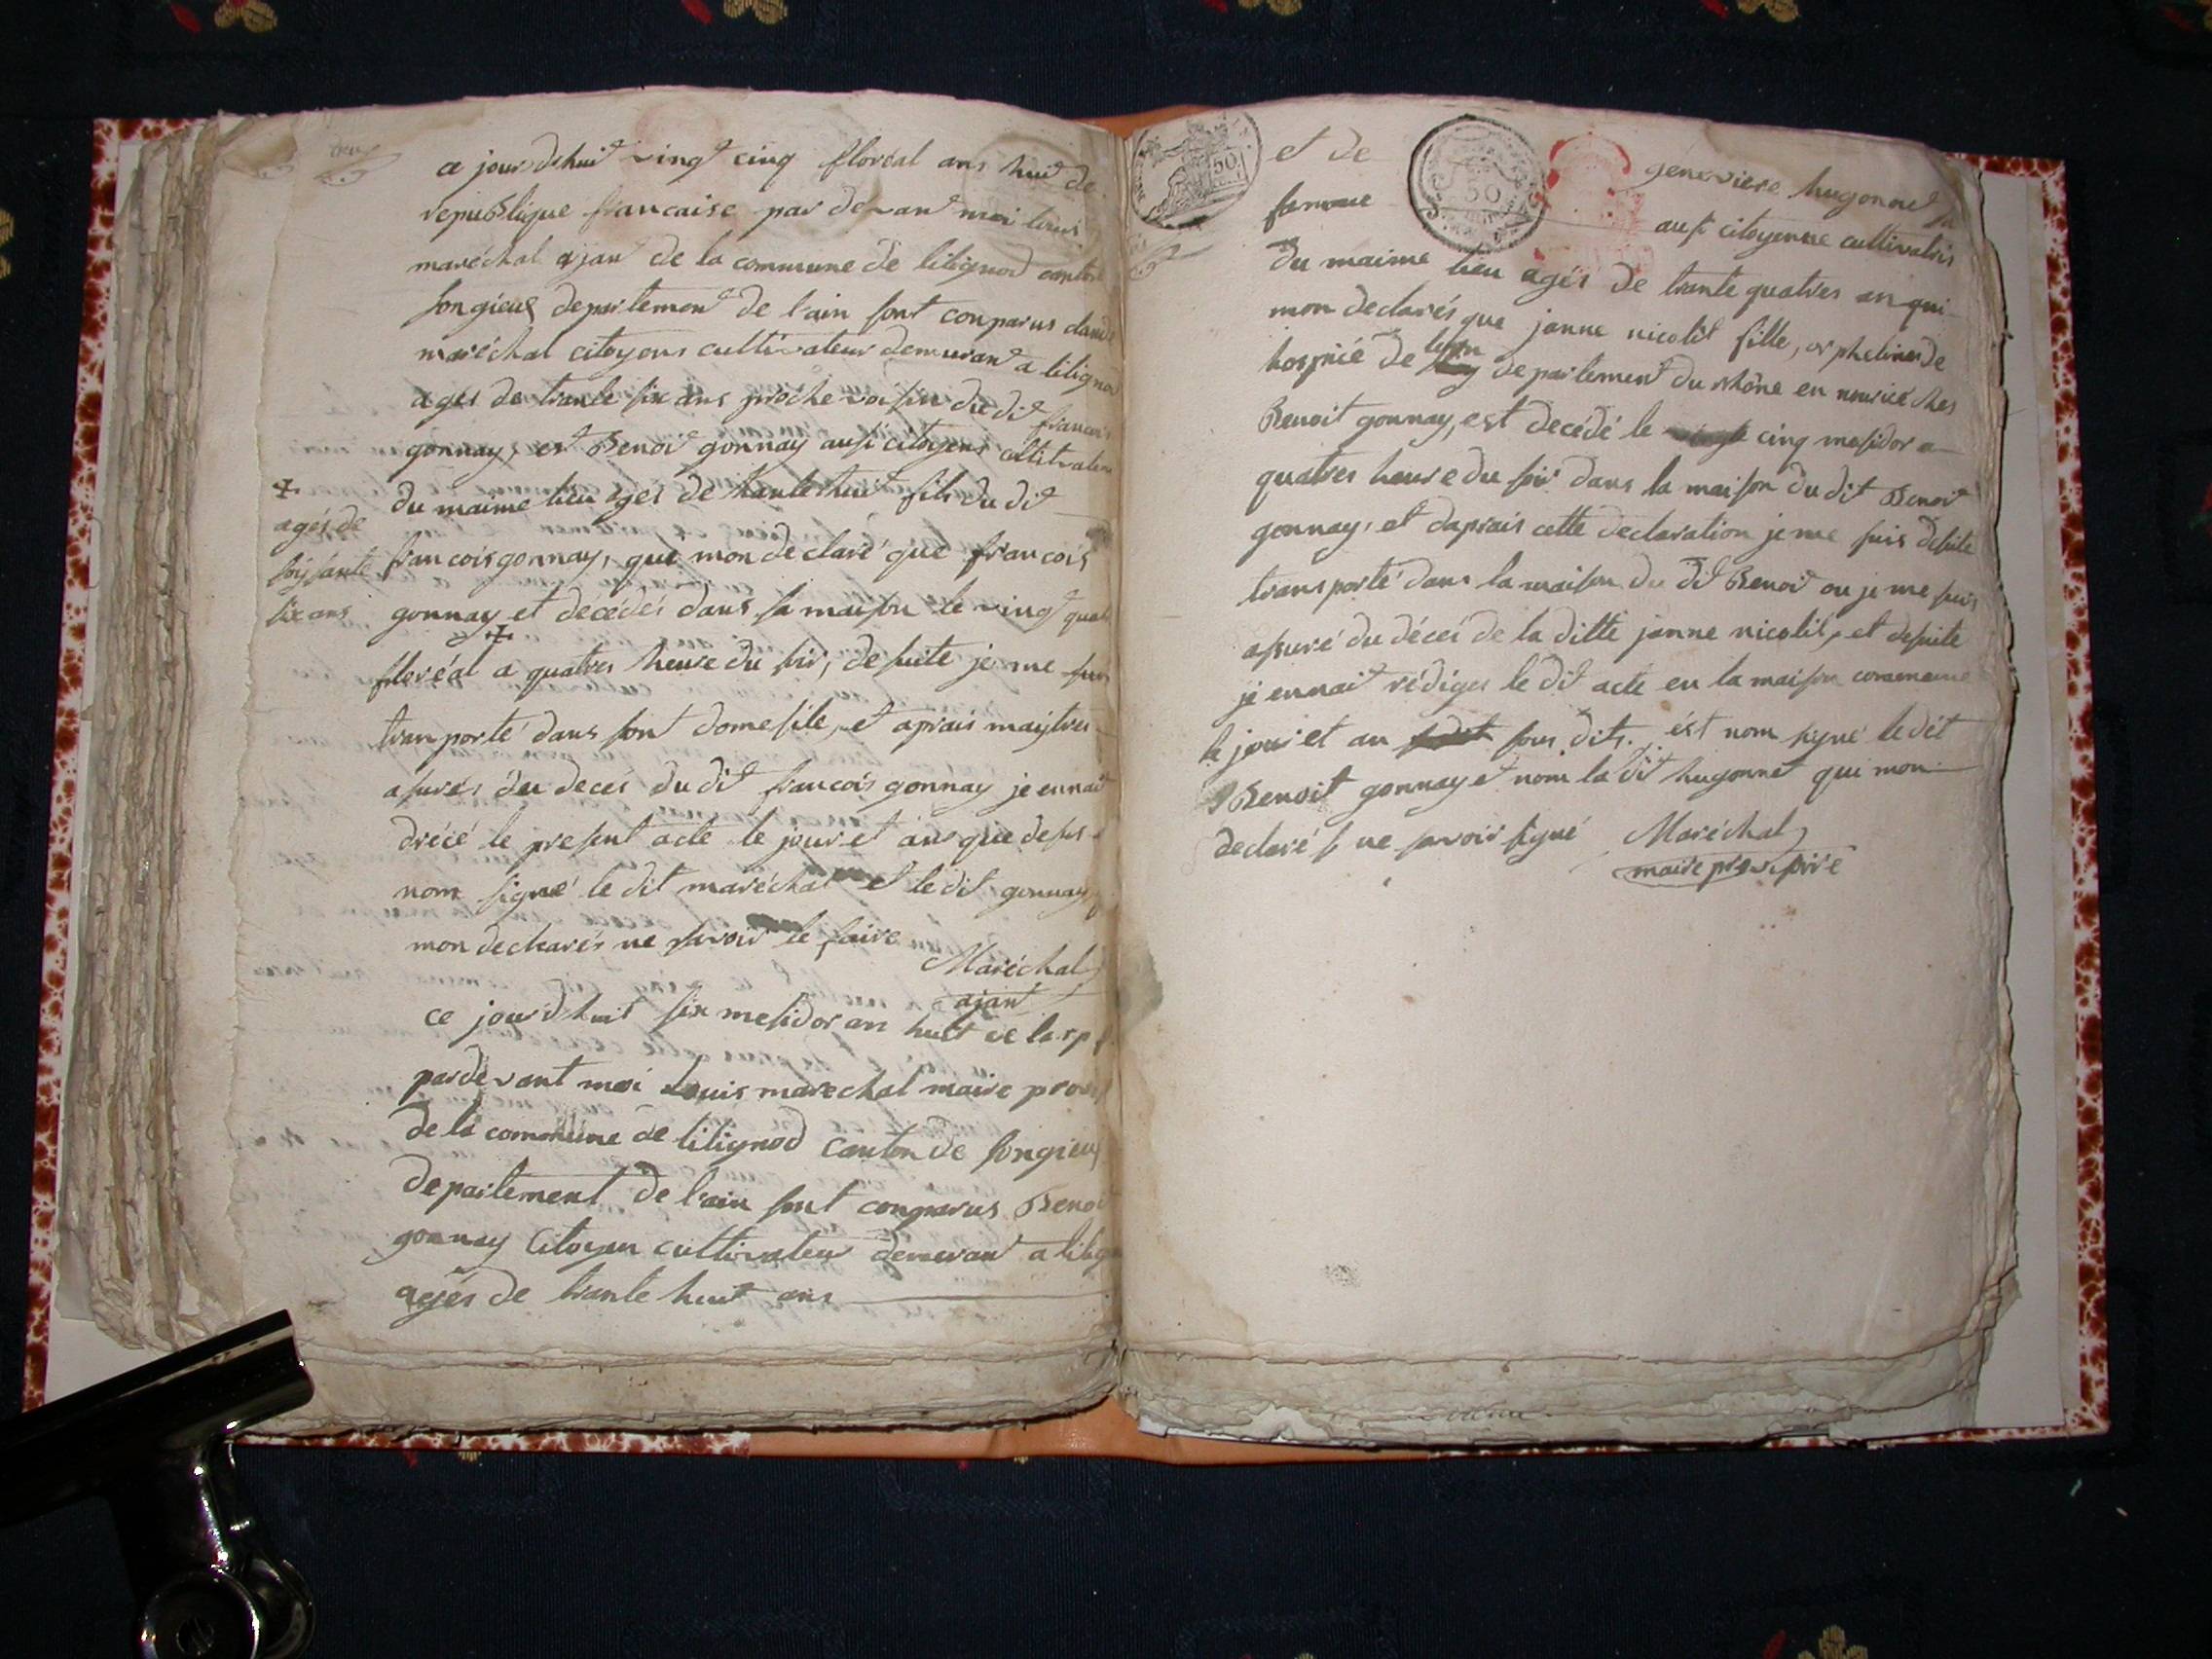 deux
a jour dhuit vingt cinq floréal ans huit de
republique francaise par devant moi louis
maréchal ajant de la commune de lilignod canton
songieux departement de l'ain sont conparus claude
maréchal citoyens cultivateur demurant a lilignod
agés de trante six ans proche voisin du dit francois
gonnay, et Benoit gonnay aussi citoyens cultivateur
du maime lieu agés de trante huit fils du dit
francois gonnay, qui mon declaré que francois
gonnay et décédés dans sa maison le vingt quatre
+
floréal a quatres heure du soir, de suite je me suis
tranporté dans sont domesile, et aprais maiytres
asurés du decés du dit francois gonnay je ennait
drécé le present acte le jour et ans que desus
nom signé le dit maréchal et le dit gonnay
mon declarés ne savoir le faire
+
agés de
soisante
six ans
Maréchal
ajant
ce jourdhuit six mesidor an huit de la rp f
pardevant moi Louis marechal maire prov
de la commune de lilignod canton de songieux
departement de l'ain sont conparus Benoit
gonnay Citoyen cultivateur demeurant a lilig
agés de trante huit ans
50
et de
50
genevieve hugonnet sa
famme
ausi citoyenne cultivatris
du maime lieu agés de trante quatres an qui
mon declarés que janne nicolit fille, orpheline de
hospicé de lyon departement du rhône en nourice ches
Benoit gonnay, est decédé le cinq mesidor a
quatres heure du soir dans la maison du dit Benoit
gonnay, et daprais cette declaration je me suis desuite
transporté dans la maison du dit Benoit ou je me suis
asuré du décés de la ditte janne nicolit, et desuite
je ennait rédiges le dit acte en la maison commune
le jour et an sous dits. ést nom signé le dit
Benoit gonnay et nom la dit hugonnet qui mon
declaré s ne savoir signé
Maréchal
maire provisoire